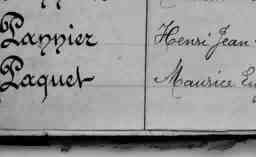 Pannier Henri Jean
Paquet Maurice